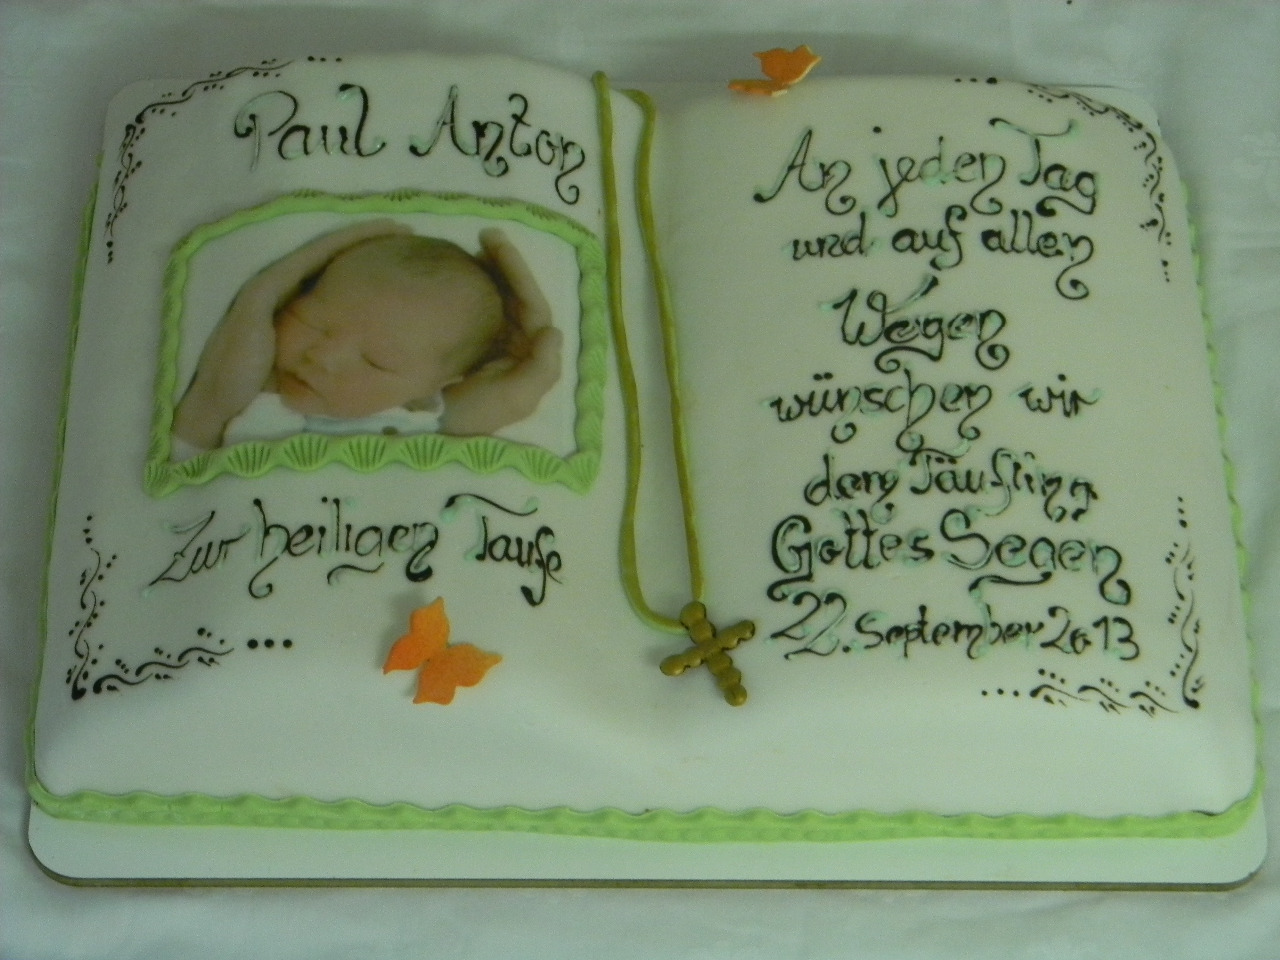 Paul Anton
Zur heiligen Taufe
An jeden Tag
und auf allen
Wegen
wünschen wir
dem Täufling
Gottes Segen
22. September 2013